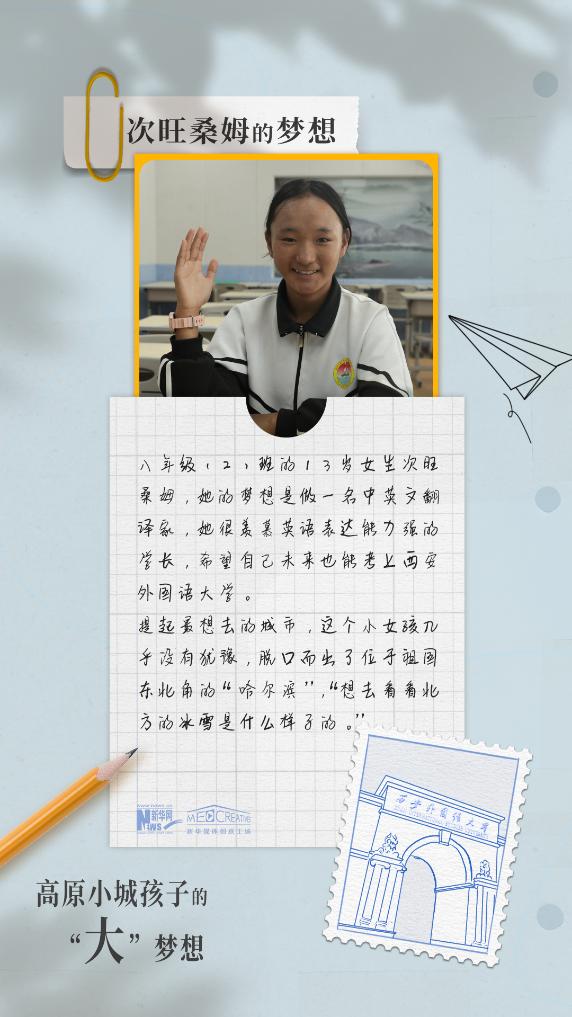 次旺桑姆的梦想
八年级（2）班的13岁女生次旺
桑姆，她的梦想是做一名中英文翻
译家，她很羡慕英语表达能力强的
学长，希望自己未来也能考上西安
外国语大学。
提起最想去的城市，这个小女孩几
乎没有犹豫，脱口而出了位于祖国
东北角的“哈尔滨”，“想去看看北
方的冰雪是什么样子的。”
西安外国语大学
www.news.cn
新华网
NEWS
MEDCREATIVE
新华媒体创意工场
高原小城孩子的
“大”梦想